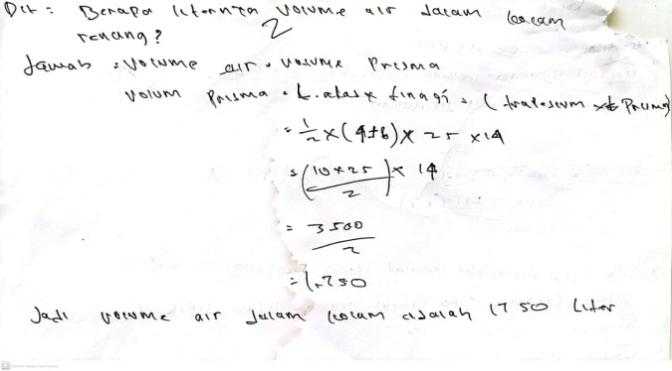 Dit : Berapa liternya volume air dalam kolam
renang? 2
Jawab : volume air = volume Prisma
volum Prisma = L. alas x tinggi = (trapesium x t Prisma)
= 1/2 x (4+6) x 25 x 14
= (10 x 25 / 2) x 14
= 3500 / 2
= 1.750
Jadi volume air dalam kolam adalah 1750 Liter